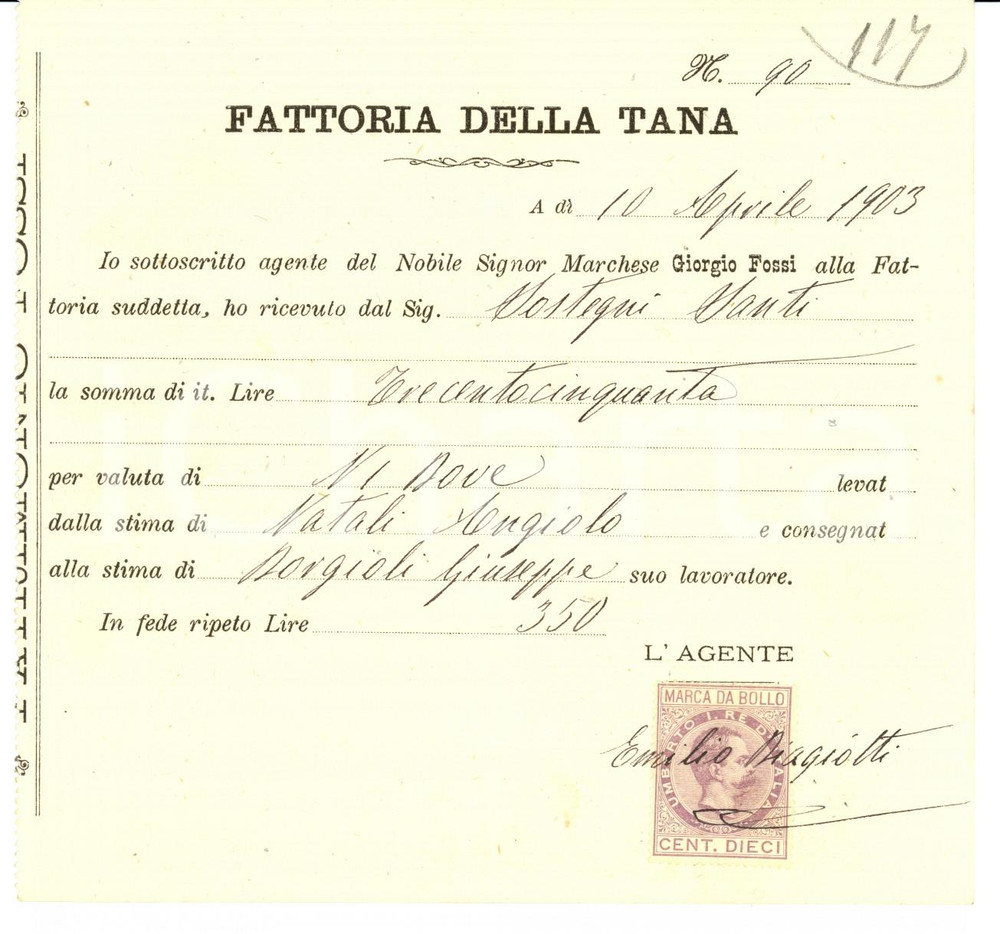 117
N. 90
FATTORIA DELLA TANA
A dì 10 Aprile 1903
Io sottoscritto agente del Nobile Signor Marchese Giorgio Fossi alla Fat-
toria suddetta, ho ricevuto dal Sig. Sostegni Santi
la somma di it. Lire Trecentocinquanta
per valuta di N 1 Bove levat
dalla stima di Natali Angiolo e consegnat
alla stima di Borgioli Giuseppe suo lavoratore.
In fede ripeto Lire 350
L' AGENTE
MARCA DA BOLLO
UMBERTO I. RE D'ITALIA
Emilio Biagiotti
CENT. DIECI